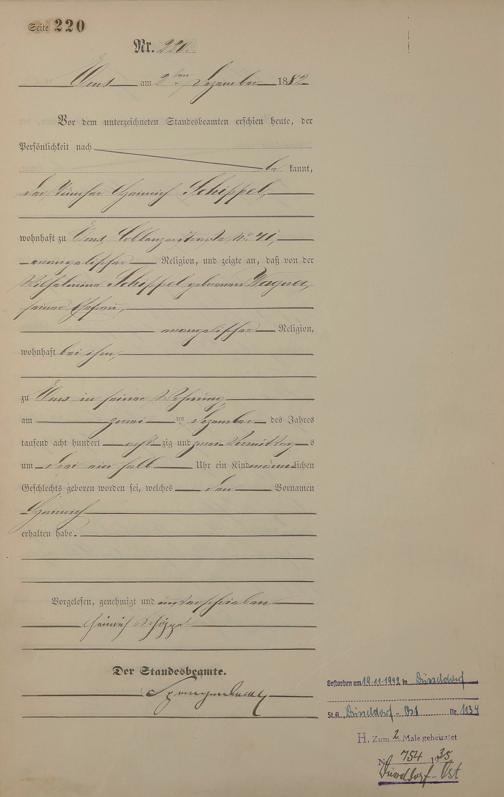 Seite 220
Nr. 220.
Ems am 2ten Dezember 1882
Vor dem unterzeichneten Standesbeamten erschien heute, der
Persönlichkeit nach
be kannt,
der Heinrich Schippel,
wohnhaft zu Ems, No 41,
evangelischer Religion, und zeigte an, daß von der
Wilhelmina Schippel geborenen Wagner,
seiner Ehefrau,
evangelischer Religion,
wohnhaft bei ihm,
zu Ems in seiner Wohnung
am zwei ten Dezember des Jahres
tausend acht hundert acht zig und zwei Vormittag s
um drei ein halb Uhr ein Kind männlichen
Geschlechts geboren worden sei, welches den Vornamen
Heinrich
erhalten habe.
Vorgelesen, genehmigt und unterschrieben
Heinrich Schippel
Der Standesbeamte.
Gestorben am 19.11.1942 in Düsseldorf
St.A. Düsseldorf-Ost Nr. 1134
H. Zum 2 Male geheiratet
Nr. 754 1935
Düsseldorf-Ost